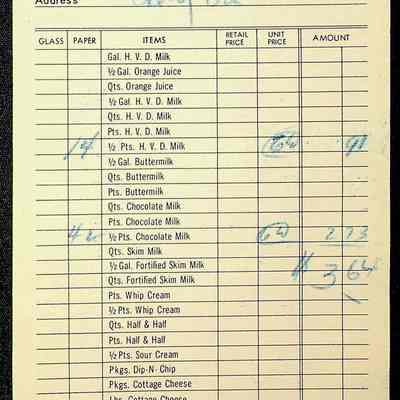 Address
GLASS PAPER ITEMS RETAIL PRICE UNIT PRICE AMOUNT
Gal. H. V. D. Milk
½ Gal. Orange Juice
Qts. Orange Juice
½ Gal. H. V. D. Milk
Qts. H. V. D. Milk
Pts. H. V. D. Milk
14 ½ Pts. H. V. D. Milk 6½ 91
½ Gal. Buttermilk
Qts. Buttermilk
Pts. Buttermilk
Qts. Chocolate Milk
Pts. Chocolate Milk
42 ½ Pts. Chocolate Milk 6½ 2 73
Qts. Skim Milk
½ Gal. Fortified Skim Milk $ 3 64
Qts. Fortified Skim Milk
Pts. Whip Cream
½ Pts. Whip Cream
Qts. Half & Half
Pts. Half & Half
½ Pts. Sour Cream
Pkgs. Dip-N-Chip
Pkgs. Cottage Cheese
Lbs. Cottage Cheese